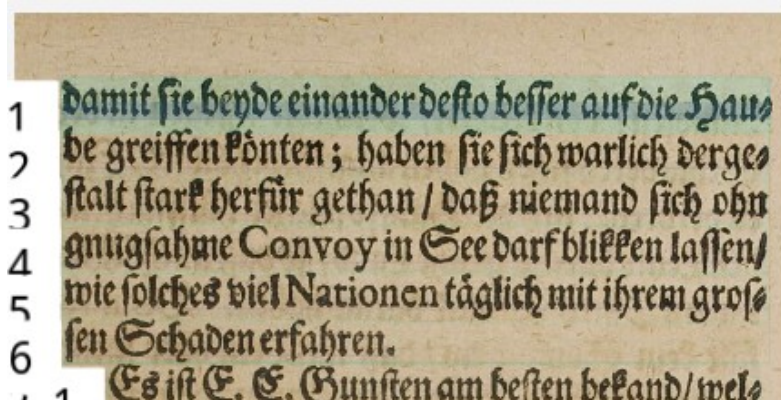 1 damit sie beyde einander desto besser auf die Hau⸗
2 be greiffen könten; haben sie sich warlich derge⸗
3 stalt stark herfür gethan / daß niemand sich ohn
4 gnugsahme Convoy in See darf blikken lassen/
5 wie solches viel Nationen täglich mit ihrem gros⸗
6 sen Schaden erfahren.
1 Es ist E. E. Gunsten am besten bekand/ wel⸗